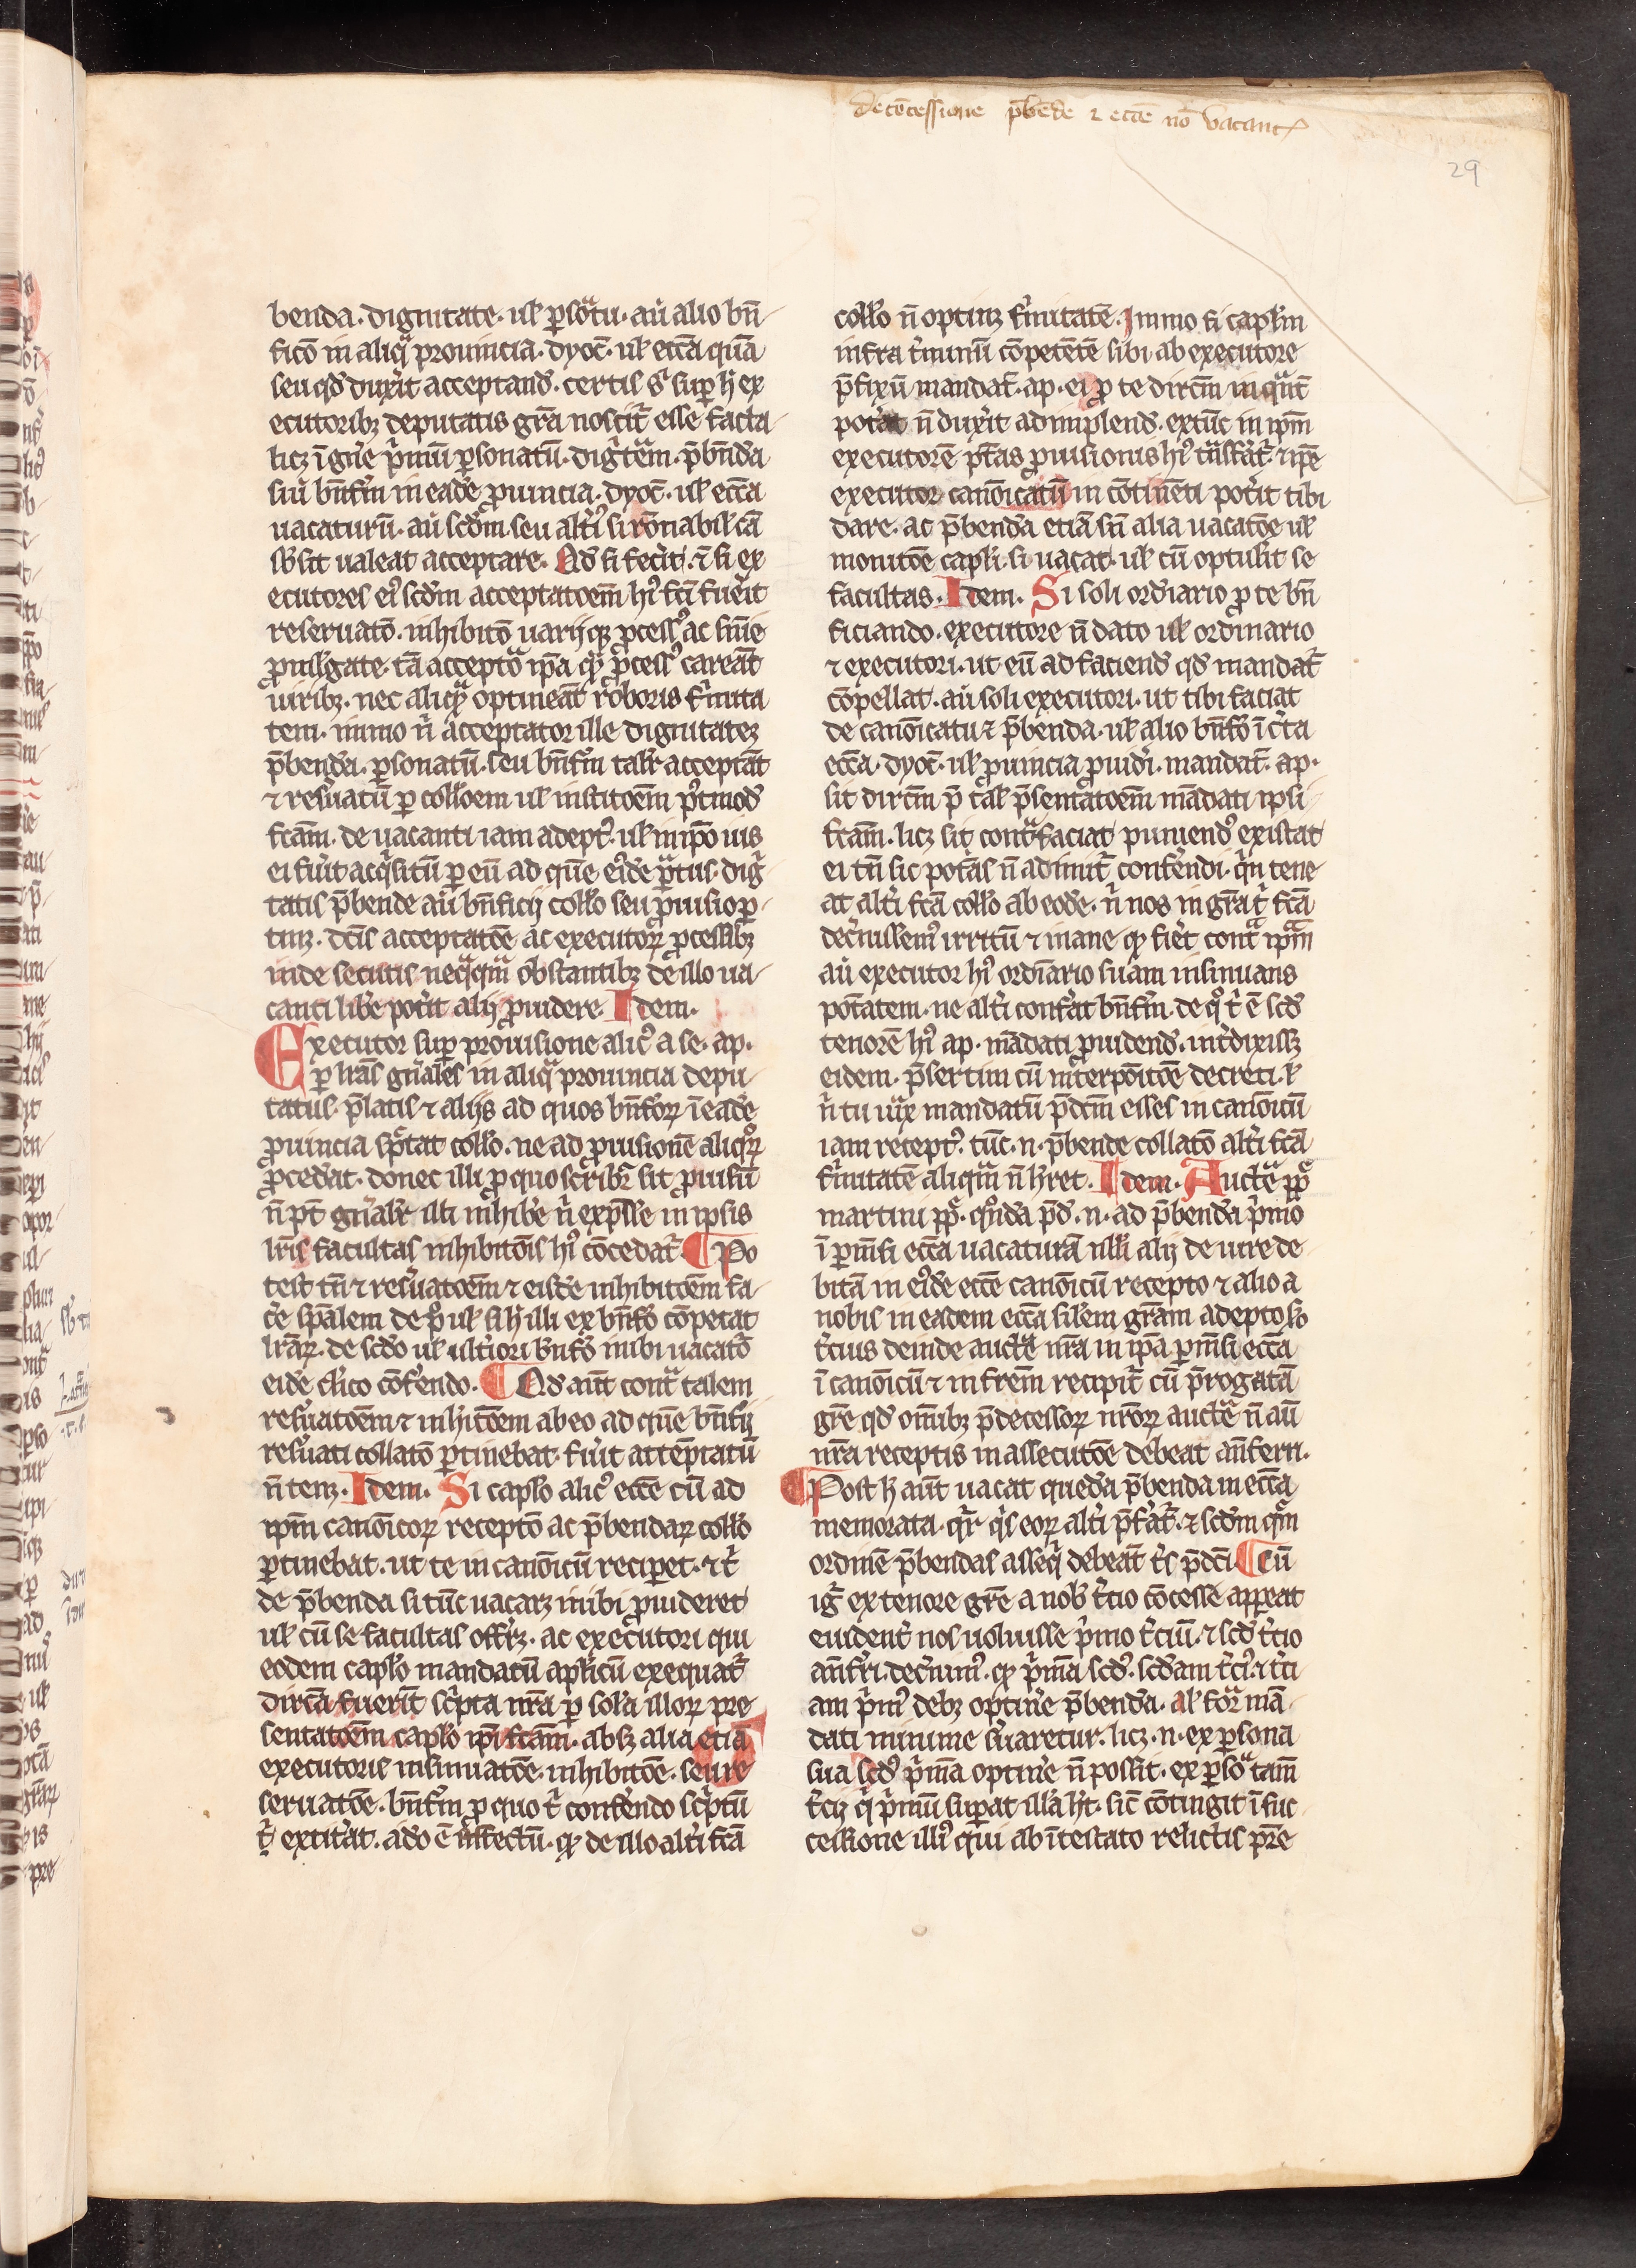 de cōcessione p̄bēde ⁊ eccē nō vacant̛
29
benda. dignitate. ul̛ ꝑsōatu. au̾ alio bn̄
ficō in aliq̾ prouincia. dyoc̄. ul̛ eccā quā
seu qd̛ dux̾it acceptand̛. certis sͥ suꝑ hͥ ex
ecutoribꝫ deputatis grā noscit̛ esse facta
licꝫ ī gn̄e p̾mū ꝑsonatū. dig̾tem. p̄bn̄da
siu̾ bn̄fm̄ in eadē ꝓuincia. dyoc̄. ul̛ eccā
uacaturū. au̾ scd̛m seu alt̾i̛ si rōnabil̛ cā
sb̛sit ualeat acceptare. Qd̛ si fec̾it. ⁊ si ex
ecutores ei̛ scd̛m acceptatōem̄ hi̛ fcī fu̾it
reseruatō. inhibitō uarijqꝫ ꝓcess̛ ac sn̄ie
ꝓmul̛gate. tā acceptō ip̄a qꝫ ꝓcess̛ careāt
uiribꝫ. nec aliq̾ optineāt roboris f̾mita
tem. immo n̾ acceptator ille dignitatez
p̄benda. ꝑsonatū. seu bn̄fm̄ talit̾ acceptāt
⁊ res̾uatū ꝑ coll̛oem ul̛ institōem̄ p̾tmod̛
fcām. de uacanti iam adept̛. ul̛ in ip̄o ius
ei fu̾it acq̾situ̅ ꝑ eū ad quē ei̛dē p̾atus. dig̾
tatis p̄bende au̾ bn̄ficij coll̛o seu ꝓuisio ꝑ
tinꝫ. dc̄is acceptatōe ac executorꝝ ꝓcessibꝫ
inde secutis neq̾qm̾ obstantibꝫ de illo ua
canti lib̾e pot̾it alij ꝓuidere. Idem.
Executor suꝑ prouisione alic̛ a se. ap.
ꝑ lrās gn̄ales in aliq̾ prouincia depu
tatus. p̄latis ⁊ alijs ad quos bn̄forꝝ ī eadē
ꝓuincia sp̄ctat coll̛o. ne ad ꝓuisionē aliq̾rꝝ
ꝓcedat. donec illi ꝓ quo scribit̾ sit ꝓuisū
n̄ pt̄ gn̄alit̾ illi inhibe̾ n̾ exp̄sse in ipsis
lrīs facultas inhibitōis hi̛ cōcedat̾. ¶ Po
test tn̄ ⁊ res̾uatōem̄ ⁊ eisdē inhibitōem̄ fa
c̾e sp̄alem de p̾ ul̛ si hͥ illi ex bn̄fō cōpetat
lrārꝝ. de scd̛o ul̛ ult̾iori bn̄fō inibi uacatō
eidē cl̛ico cōferendo. ¶ Qd̛ aut̄ cont̾ talem
res̾uatōem ⁊ inhi̛tōem ab eo ad quē bn̄fij
res̾uati collatō ꝑtinebat. fu̾it attēptatū
n̄ tenꝫ. Idem. Si capl̛o alic̛ eccē cū ad
ipm̄ canōicorꝝ receptō ac p̄bendarꝝ coll̛o
ꝑtinebat. ut te in canōicū reciꝑet. ⁊ t̾
de p̄benda si tūc uacarꝫ inibi ꝓuideret
ul̛ cū se facultas offr̾ꝫ. ac executori qui
eodem capl̛o mandatū apl̛icū exequat̾
dircā fuerīt sc̾pta nr̄a ꝑ solā illorꝝ pre
sentatōem capl̛o ip̄i fcām. absꝫ alia etiā
executoris insinuatōe. inhibitōe. seu re
seruatōe. bn̄fm̄ ꝓ quo t̾ conferendo sc̾ptū
t̾. extit̾at. adō ē affectū. qꝫ de illo alt̾i fcā
coll̛o n̄ optinꝫ f̾mitatē. Immo si capl̛m
infra t̾minū cōpetētē sibi ab executore
p̄fixū mandat̄. ap. ei ꝓ te dircm̄ in q̾nt̄
pot̾at n̄ dux̾it adimplend̛. extūc in ipm̄
executorē p̄tās ꝓuisionis hi̛ t̾nsf̾at̾. ⁊ ip̄e
executor canōicatū in cōtinēti pot̾it tibi
dare. ac p̄benda etiā sn̄ alia uacatōe ul̛
monitōe capl̛i. si uacat. ul̛ cū optul̾it se
facultas. Idem. Si soli ordīario ꝓ te bn̄
ficiando. executore n̄ dato ul̛ ordinario
⁊ executori. ut eū ad faciend̛ qd̛ mandat̾
cōpellat. au̾ soli executori. ut tibi faciat
de canōicatu ⁊ p̄benda. ul̛ alio bn̄fō ī c̾ta
eccā. dyoc̄. ul̛ ꝓuincia ꝓuid̾i. mandat̄. ap.
sit dircm̄ p̄ tal̛ p̄sentatōem̄ mādati ipsi
fcām. licꝫ sit cont̾faciat puniend̛ existat
ei tn̄ sic potās n̄ adimit̾ confer̾ndi. q̾n tene
at alt̾i fcā coll̛o ab eodē. n̾ nos in grā t̾ fcā
decre̾uissem̛ irritū ⁊ inane qꝫ fiet̾ cont̾ ipm̄
au̾ executor hi̛ ordīario suam insinuans
potātem. ne alt̾i conf̾at bn̄fm̄. de q̾ t̾ ē scd̛
tenorē hi̛ ap. mādati ꝓuidend̛. int̾dixissꝫ
eidem. p̄sertim cū int̾erpōitōe decreti. ul̛
n̾ tu iux̾ mandatū p̄dcm̄ esses in canōicū
iam recept̛. tūc. n. p̄bende collatō alt̾i fcā
f̾mitatē aliqm̾ n̄ h̾ret. Idem. Auct̾e pp̄
martini pp̄. q̾rti. qūda p̄d̛. n. ad p̄benda p̾mo
ī ꝑmn̄si eccā uacaturā nll̛i alij de iure de
bitā in ei̛dē eccē canōicū recepto ⁊ alio a
nobis in eadem eccā sil̛em grām adepto so
t̾cius deinde auct̾e nr̄a in ip̄a ꝑmn̄si eccā
ī canōicū ⁊ in frēm recipit̾ cū p̄rogata
gr̄e qd̛ om̄ibꝫ p̄decessorꝝ nr̄orꝝ auct̾e n̄ au̾
nr̄a receptis in assecutōe debeat anferri.
¶ Post hͥ aut̄ uacat quedā p̄benda in eccā
memorata. q̾r q̾s eorꝝ alt̾i p̄f̾at̾. ⁊ scd̛m q̾m
ordinē p̄bendas asseq̾ debeāt t̾s p̄dci ¶ Cū
ig̾ ex tenore gr̄e a nob̛ t̾cio cōcesse appeat
euident̾ nos uoluisse p̾mo t̾ciū. ⁊ scd̛ t̾cio
anf̾ri. dec̾nim̛. qꝫ p̾mā scd̛. scd̛am t̾ci̛. ⁊ t̾ti
am p̾mi̛ debꝫ optin̾e p̄benda. al̛ forma mā
dati minime s̾uaretur. licꝫ. n. ex ꝑsona
sua scd̛ p̾ma optin̾e n̄ possit. ex ꝑsōa tam̄
t̾cij q̾ p̾mū suꝑat illā h̾t. sic cōtingit ī suc
cessione illi̛ qui ab ītestato relictis pr̄e